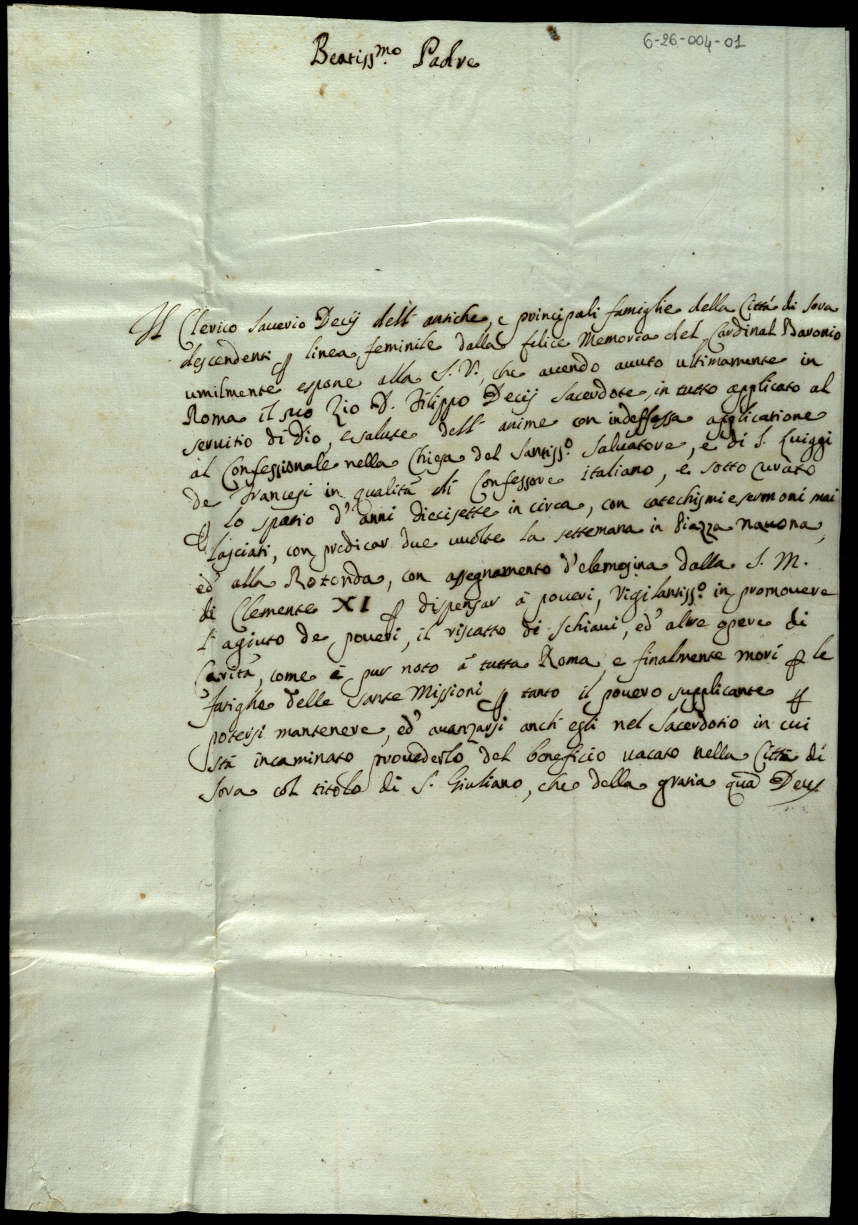 6-26-004-01
Beatiss.mo Padre
Il Clerico Saverio Decij dell' antiche, e principali famiglie della Città di Sora
descendenti linea feminile dalla felice Memoria del Cardinal Baronio
umilmente espone alla S. V., che avendo avuto ultimamente in
Roma il suo Zio D. Filippo Decij Sacerdote, in tutto applicato al
servitio di Dio, e salute dell' anime con indeffessa applicatione
al Confessionale nella Chiesa del Santiss.o Salvatore, e di S. Luiggi
de Francesi in qualità di Confessore italiano, e sotto curato
lo spatio d' anni diecisette in circa, con catechismi e sermoni mai
lasciati, con predicar due vuolte la settemana in Piazza navona,
ed' alla Rotonda, con assegnamento d' elemosina dalla S. M.
di Clemente XI dispensar à poveri, Vigilantiss.o in promovere
l' agiuto de poveri, il riscatto di Schiavi, ed' altre opere di
Carità, come è pur noto à tutta Roma, e finalmente morì le
fatighe delle Sante Missioni tanto il povero supplicante
potersi mantenere, ed' avanzarsi anch' egli nel Sacerdotio in cui
stà incaminato provederlo del beneficio vacato nella Città di
Sora col titolo di S. Giuliano, che della gratia quã Deus